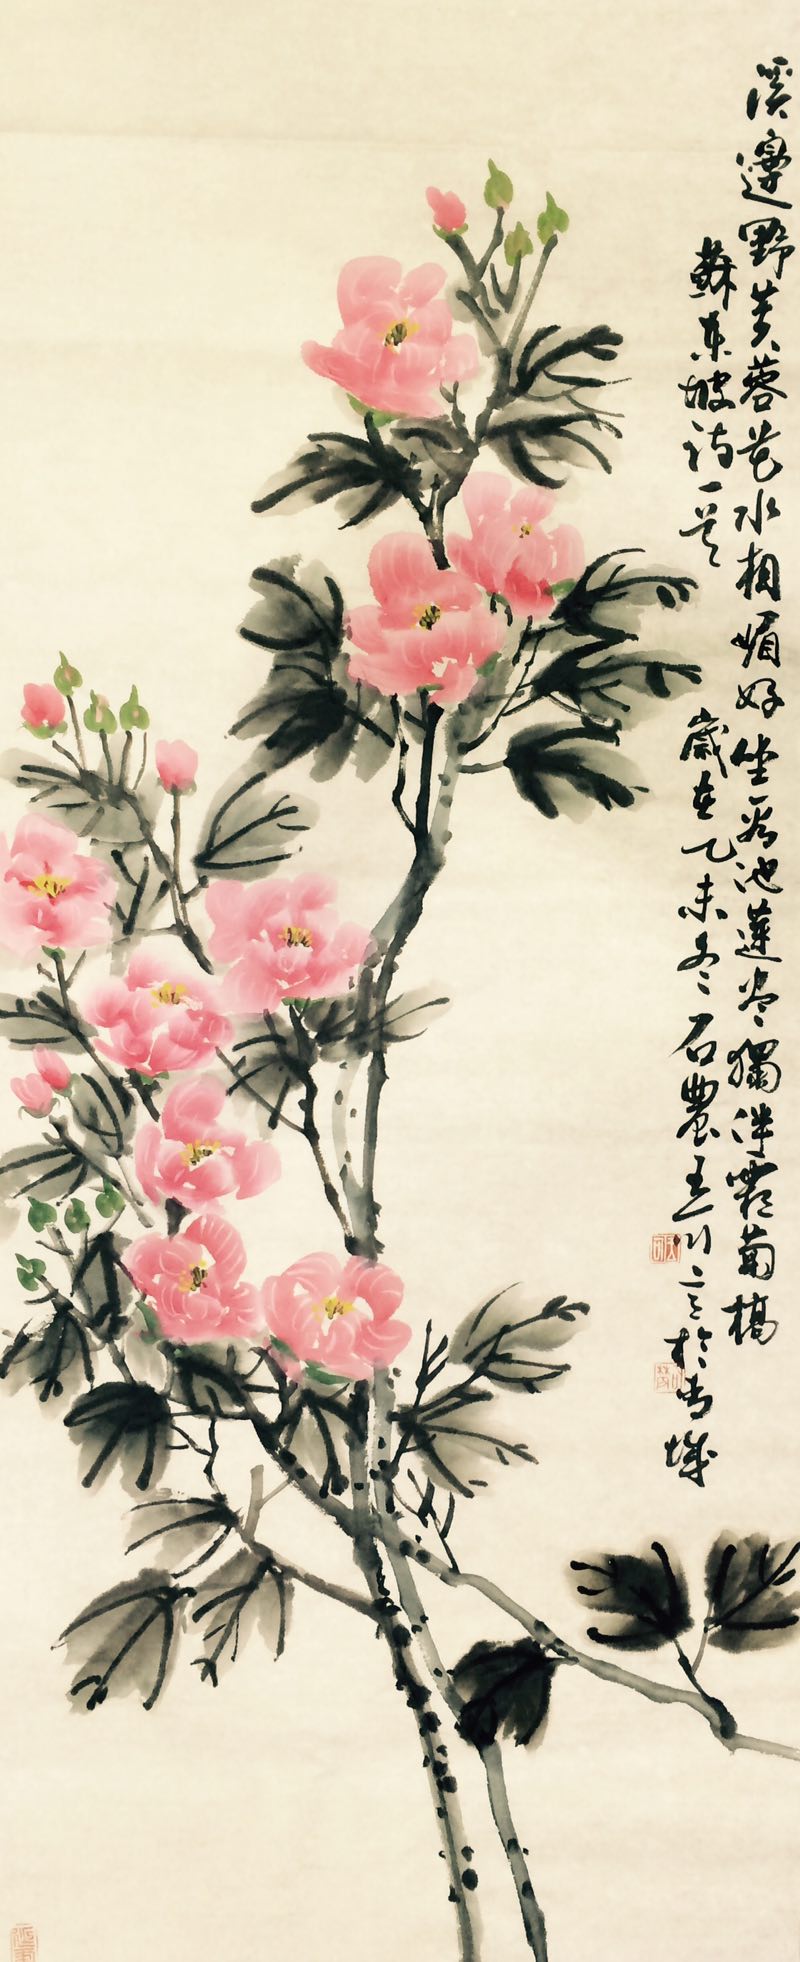 溪邊野芙蓉花水相媚好坐看池蓮尽獨伴霜菊槁
蘇東坡詩一首 歲在乙未冬石農王川於青城